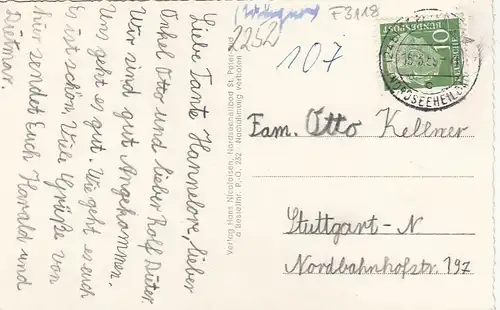 Liebe Tante Hannelore, lieber
Onkel Otto und lieber Rolf Dieter.
Wir sind gut angekommen.
Uns geht es gut. Wie geht es euch
Es ist schön. Viele Grüße von
hier sendet Euch Harald und
Dietmar.
Verlag Hans Nicolaisen, Nordseeheilbad St. Peter
Bestellnr. P.-O. 252 Nachahmung verboten
F3118
2252
107
10
NORDSEEHEILBAD
Fam. Otto Kellner
Stuttgart-N
Nordbahnhofstr. 197